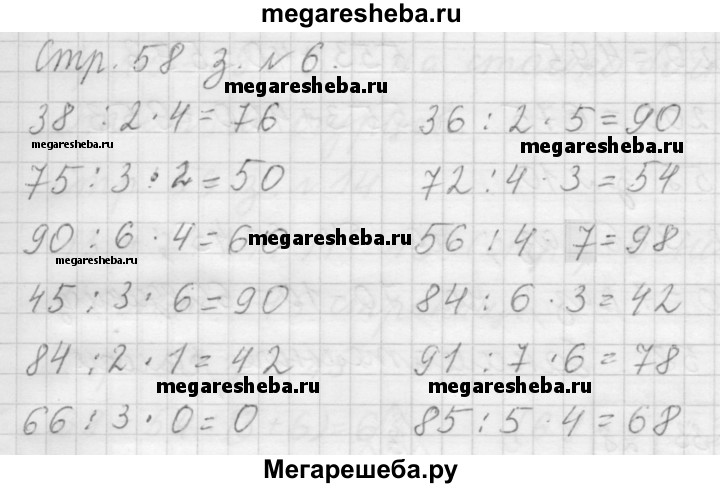 megaresheba.ru
Стр. 58 з. № 6.
megaresheba.ru
38 : 2 · 4 = 76 36 : 2 · 5 = 90
megaresheba.ru megaresheba.ru
75 : 3 · 2 = 50 72 : 4 · 3 = 54
90 : 6 · 4 = 60 megaresheba.ru 56 : 4 7 = 98
megaresheba.ru
45 : 3 · 6 = 90 84 : 6 · 3 = 42
84 : 2 · 1 = 42 91 : 7 · 6 = 78
megaresheba.ru megaresheba.ru
66 : 3 · 0 = 0 85 : 5 · 4 = 68
Мегарешеба.ру